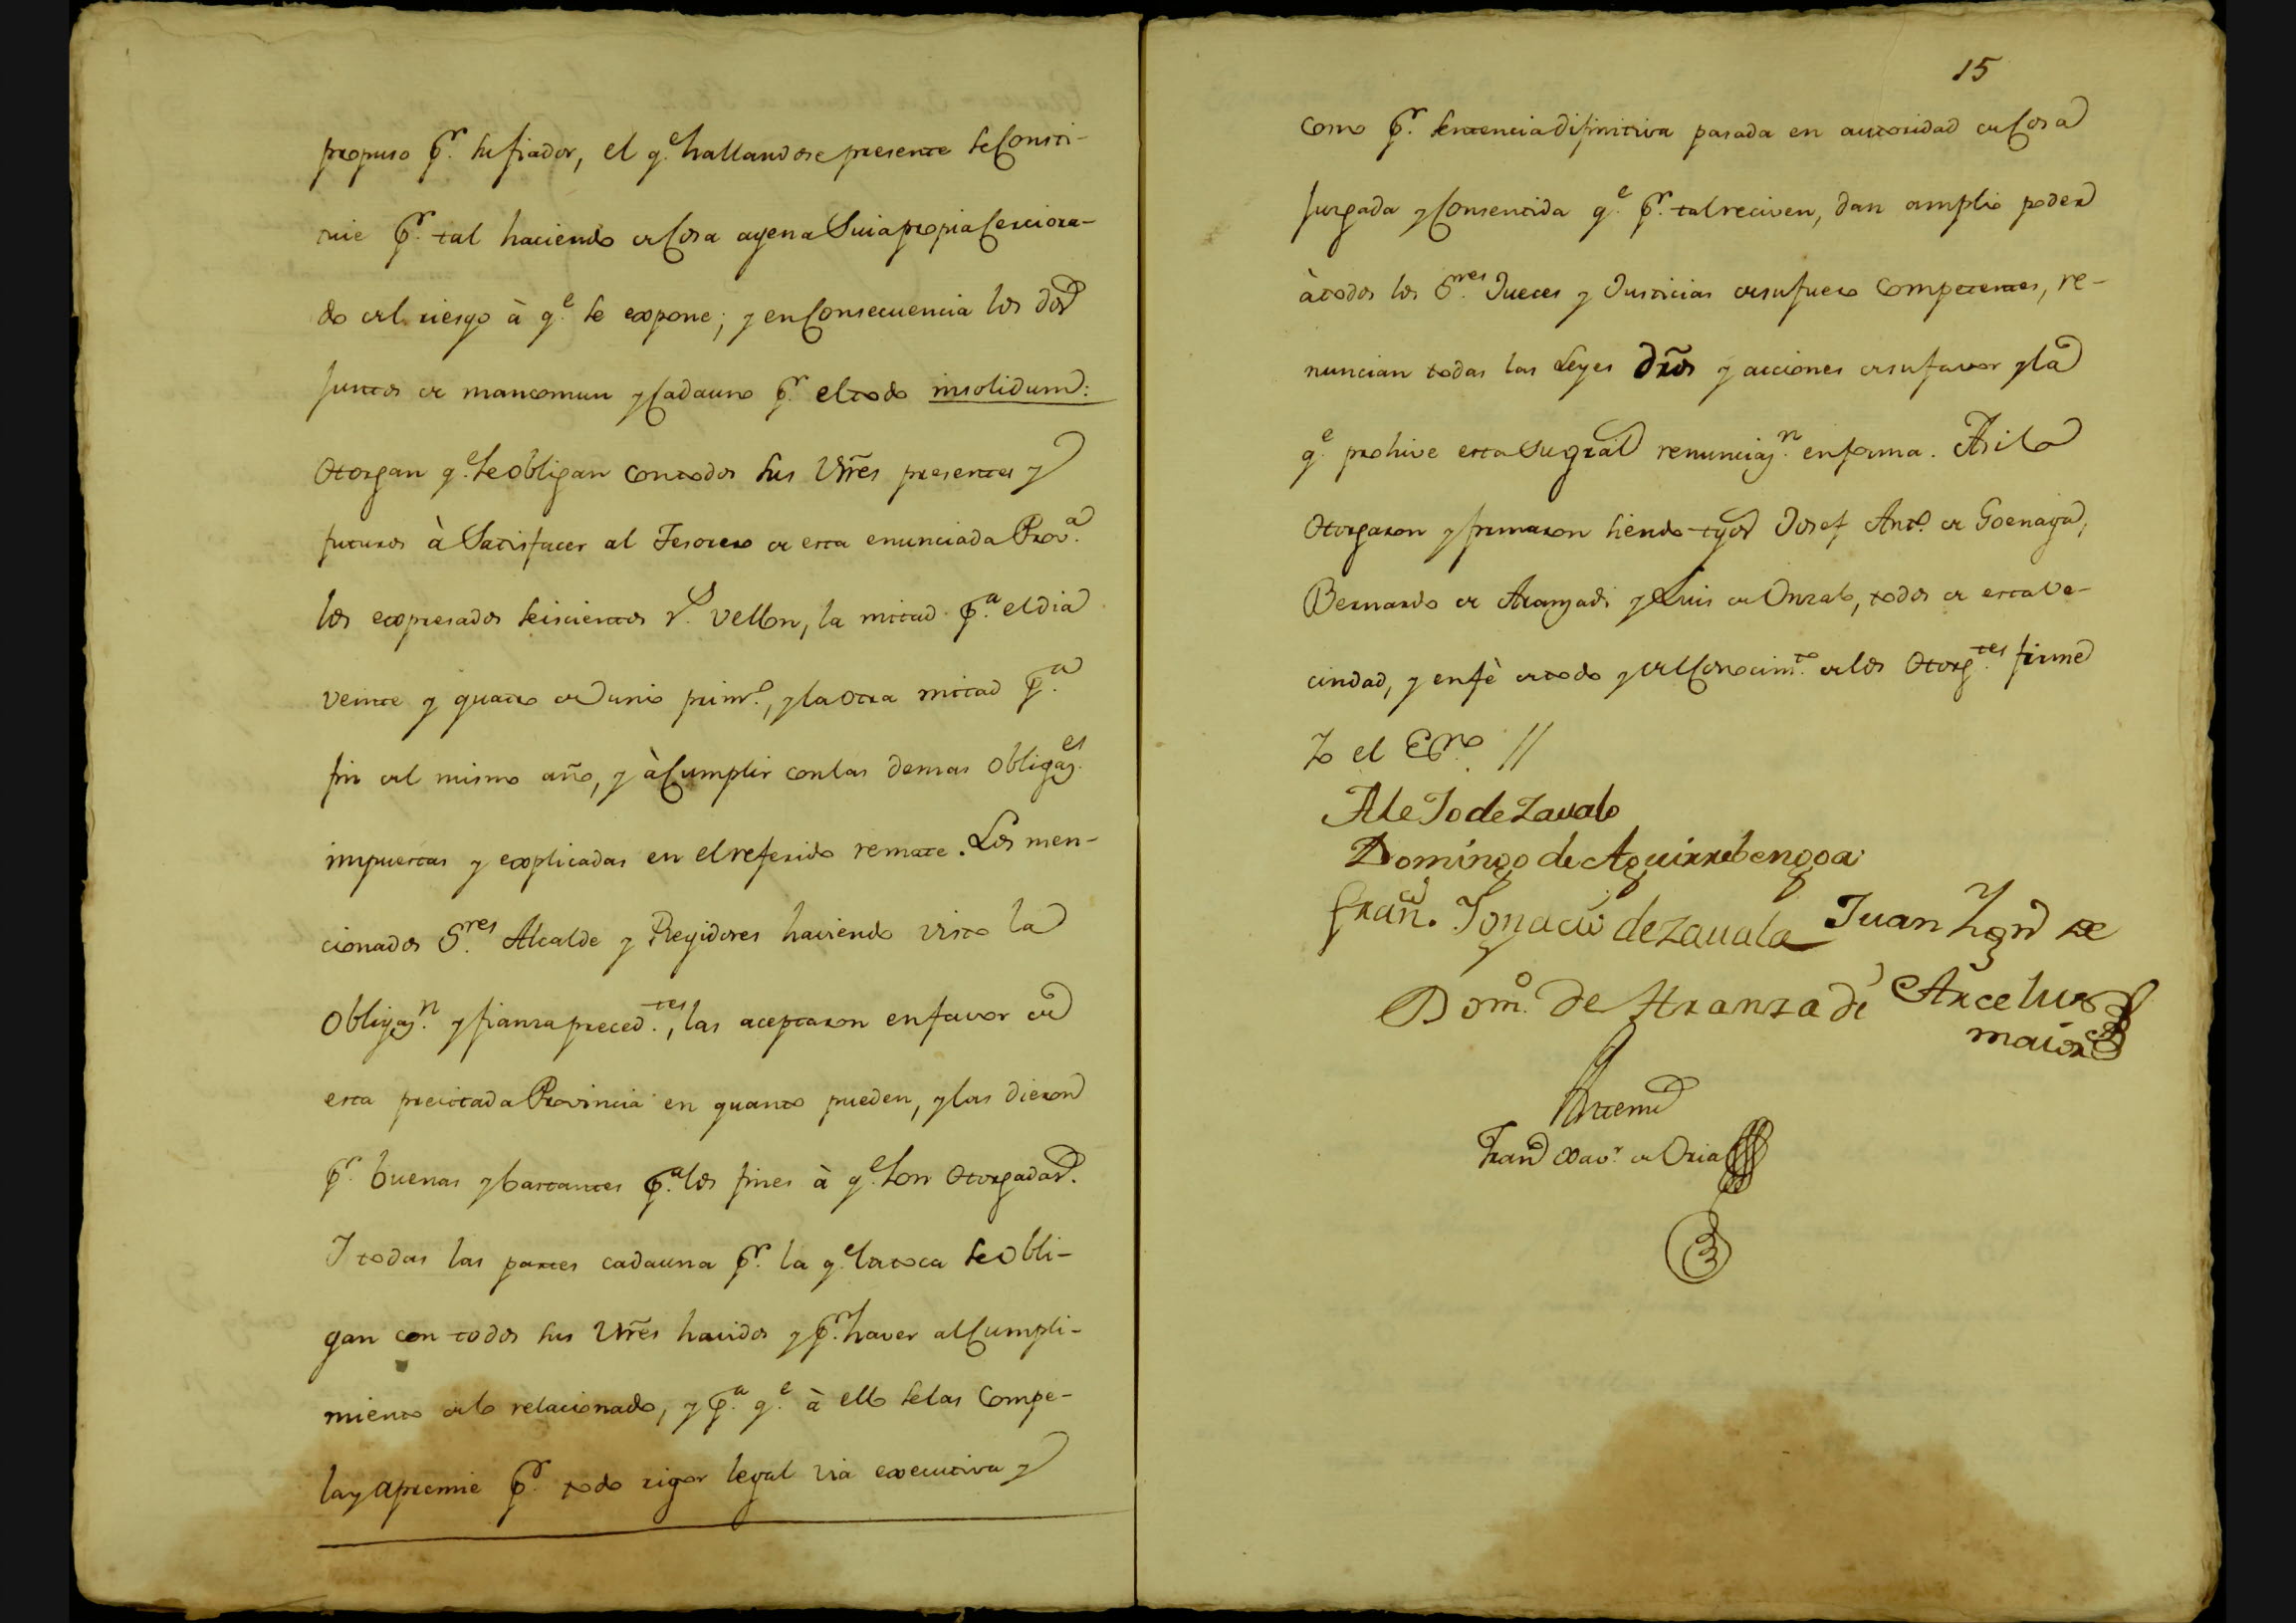 propuso pr. su fiador, el q.e hallandose presente se Consti-
tuie pr. tal haciendo de Cosa agena Suia propia Cerciora-
do del riesgo à q.e se expone; y en Consecuencia los dos
juntos de mancomun y Cada uno pr. el todo insolidum:
Otorgan q.e se obligan con todos sus Vñes presentes y
futuros à Satisfacer al Tesorero de esta enunciada Prov.a
los expresados seiscientos r.s vellon, la mitad p.a el dia
veinte y quatro de Junio primo., y la otra mitad p.a
fin del mismo año, y à Cumplir con las demas obligaz.es
impuestas y explicadas en el referido remate. Los men-
cionados S.res Alcalde y Regidores haviendo visto la
Obligaz.n y fianza preced.tes, las aceptaron en favor de
esta precitada Provincia en quanto pueden, y las dieron
pr. buenas y bastantes p.a los fines à q.e son otorgadas.
I todas las partes cada una pr. la q.e la toca se obli-
gan con todos sus Vñes havidos y pr. haver al Cumpli-
miento de lo relacionado, y p.a q.e à ello se las Compe-
la y apremie pr. todo rigor legal via executiva y
15
como pr. sentencia difinitiva pasada en autoridad de Cosa
juzgada y Consentida q.e pr. tal reciven, dan amplio poder
à todos los S.res Jueces y Justicias de su fuero Competentes, re-
nuncian todas las Leyes drõs y acciones de su favor y la
q.e prohive esta Su gral renunciaz.n en forma. Asi lo
Otorgaron y firmaron siendo tgos Josef Ant.o de Goenaga,
Bernardo de Aranzadi y Luis de Onzalo, todos de esta Ve-
cindad, y en fè de todo y del Conocim.to de los Otorg.tes firme
Yo el Essno //
Alejo de Zavalo
Domingo de Aguirrebengoa
Fran.co Ygnacio de Zauala Juan Ygn de
Dom.o de Aranzadi Arcelus
maior
Antemi
Fran Xav.r de Oria